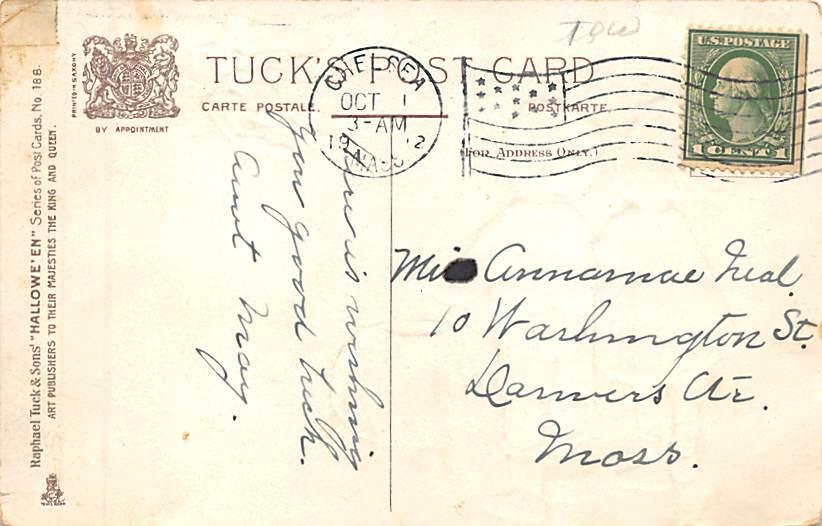 TUCK'S POST CARD
CARTE POSTALE.
POSTKARTE.
(FOR ADDRESS ONLY.)
PRINTED IN SAXONY
BY APPOINTMENT
Raphael Tuck & Sons' "HALLOWE'EN" Series of Post Cards, No. 188.
ART PUBLISHERS TO THEIR MAJESTIES THE KING AND QUEEN.
CHELSEA
OCT 1
3-AM
19 12
MASS
U.S. POSTAGE
1 CENT 1
is wishing
you good luck.
Aunt May.
Miss Annamae Neal
10 Washington St.
Danvers
Mass.